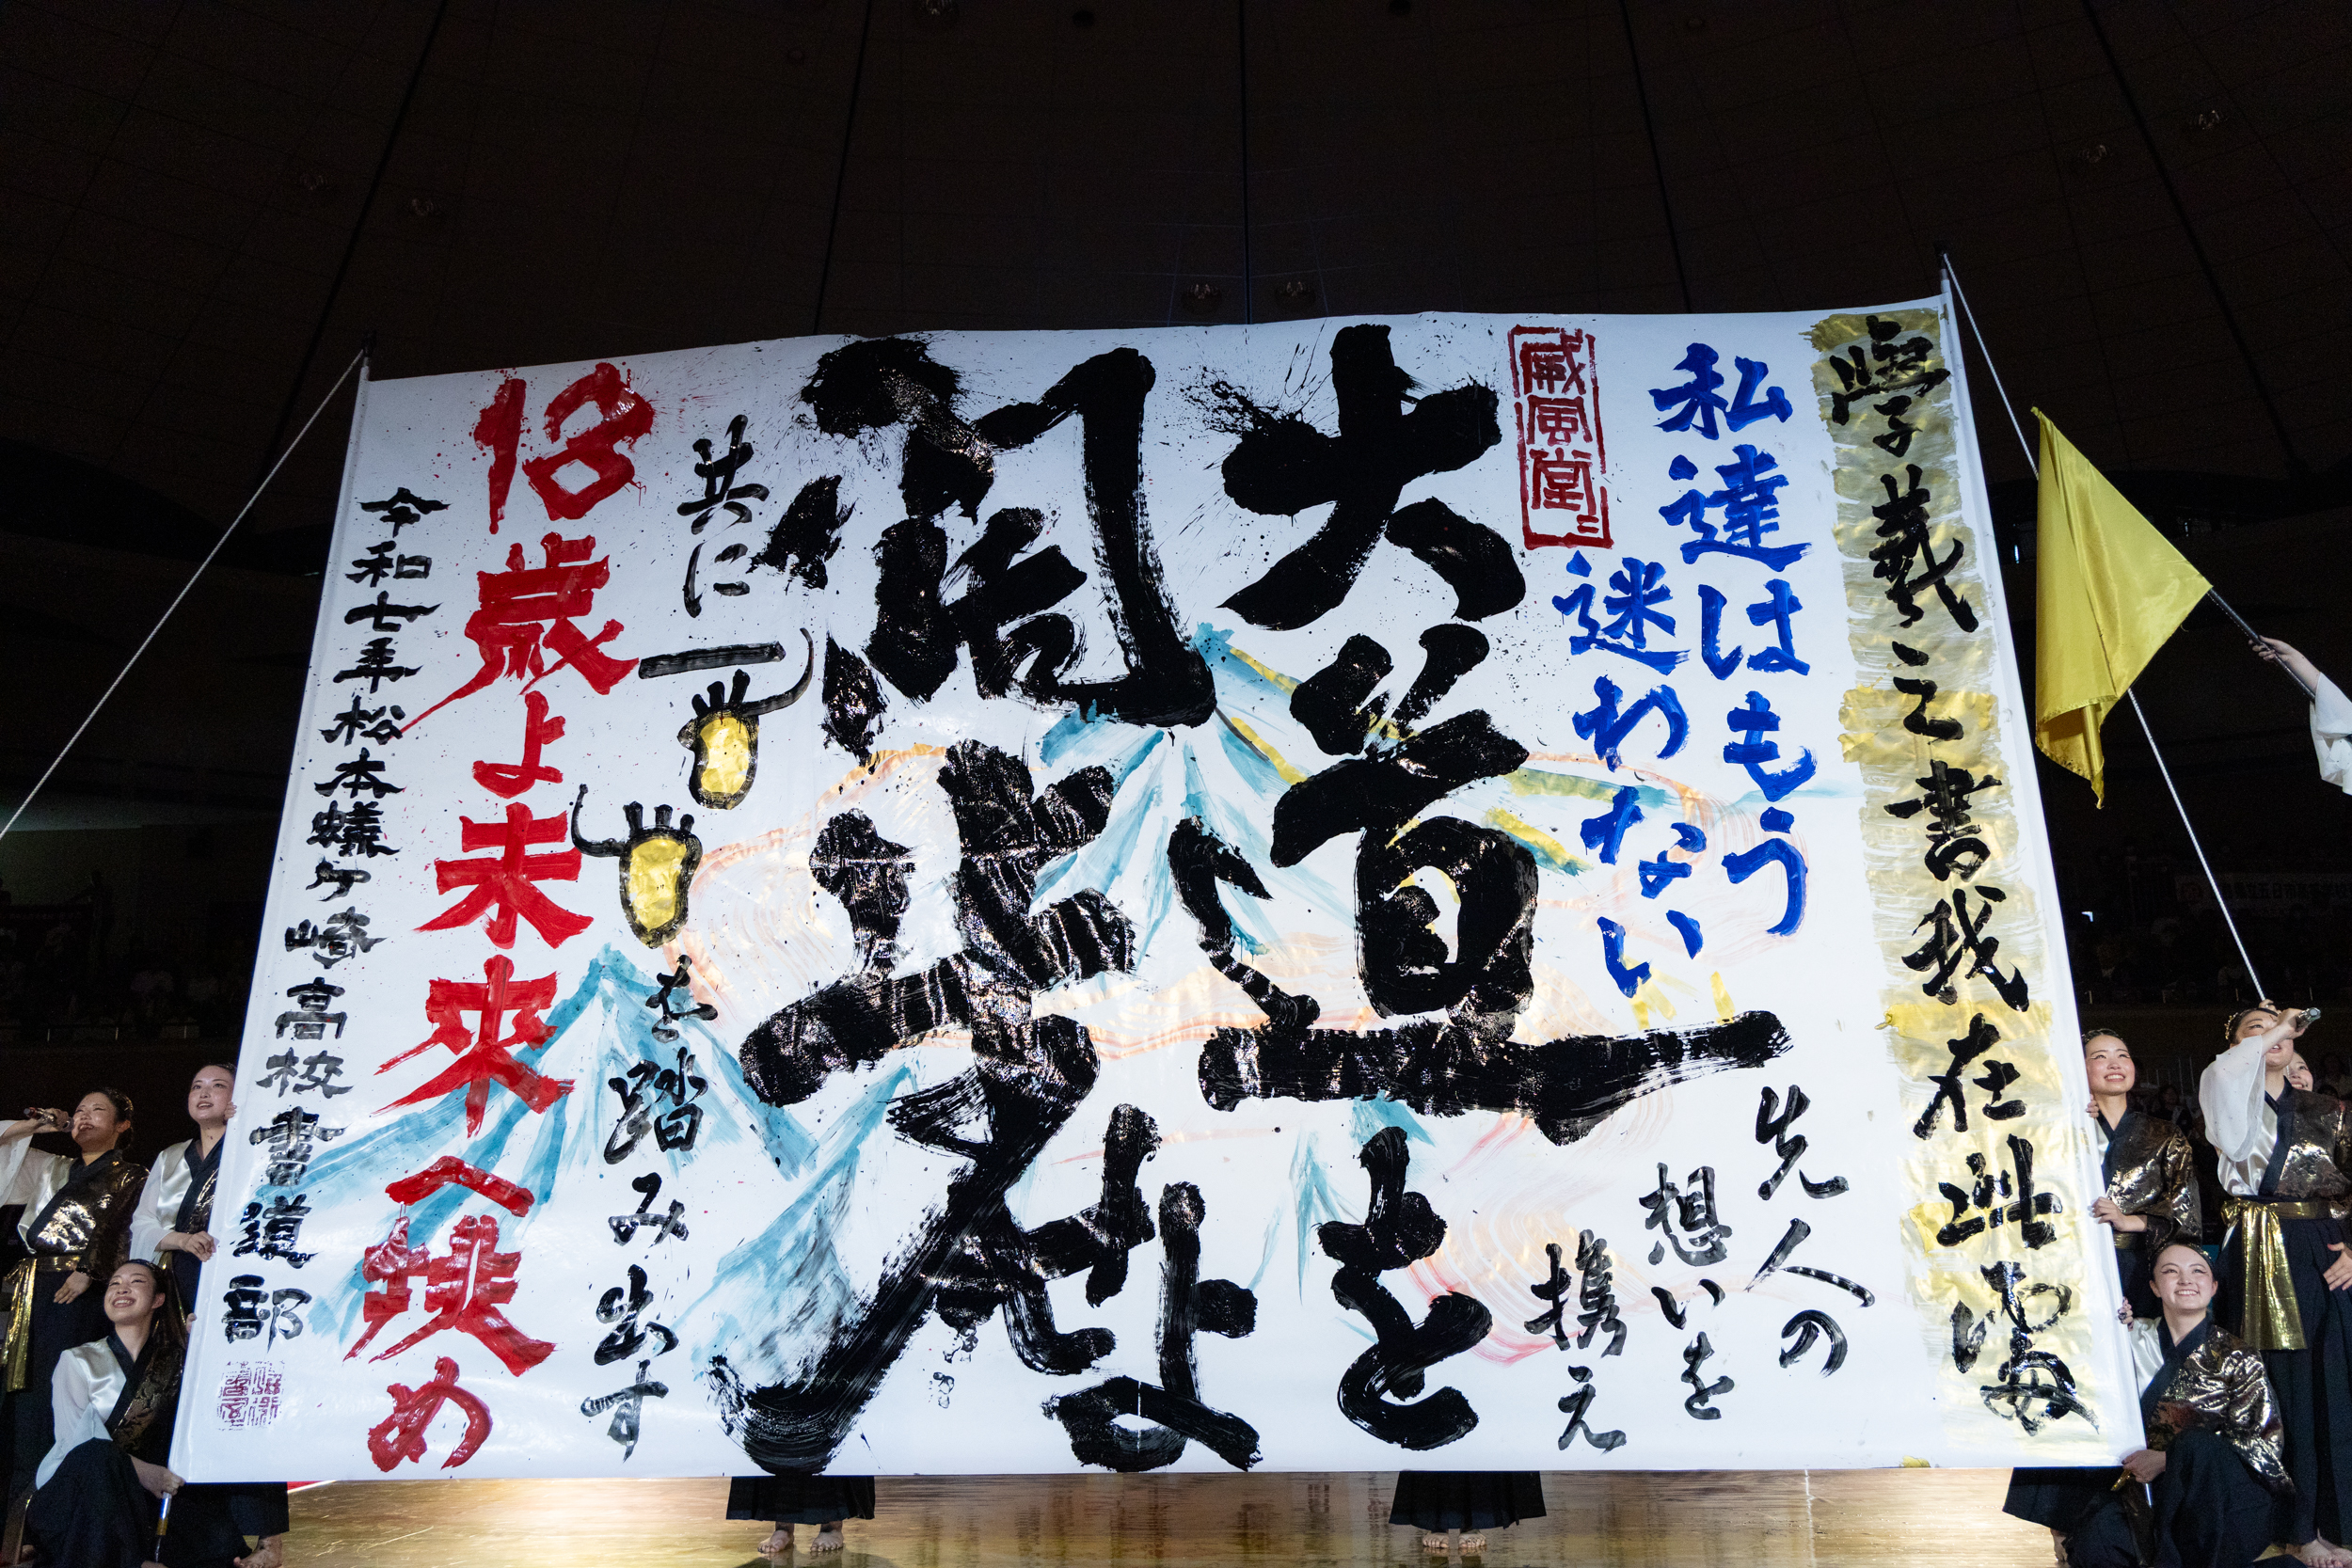 學羲之書我在此
私達はもう
迷わない
威風堂々
先人の
想いを
携え
大道を
闊歩せよ
共に一
を踏み出す
18歳よ未来へ挑め
令和七年松本蟻ヶ崎高校書道部